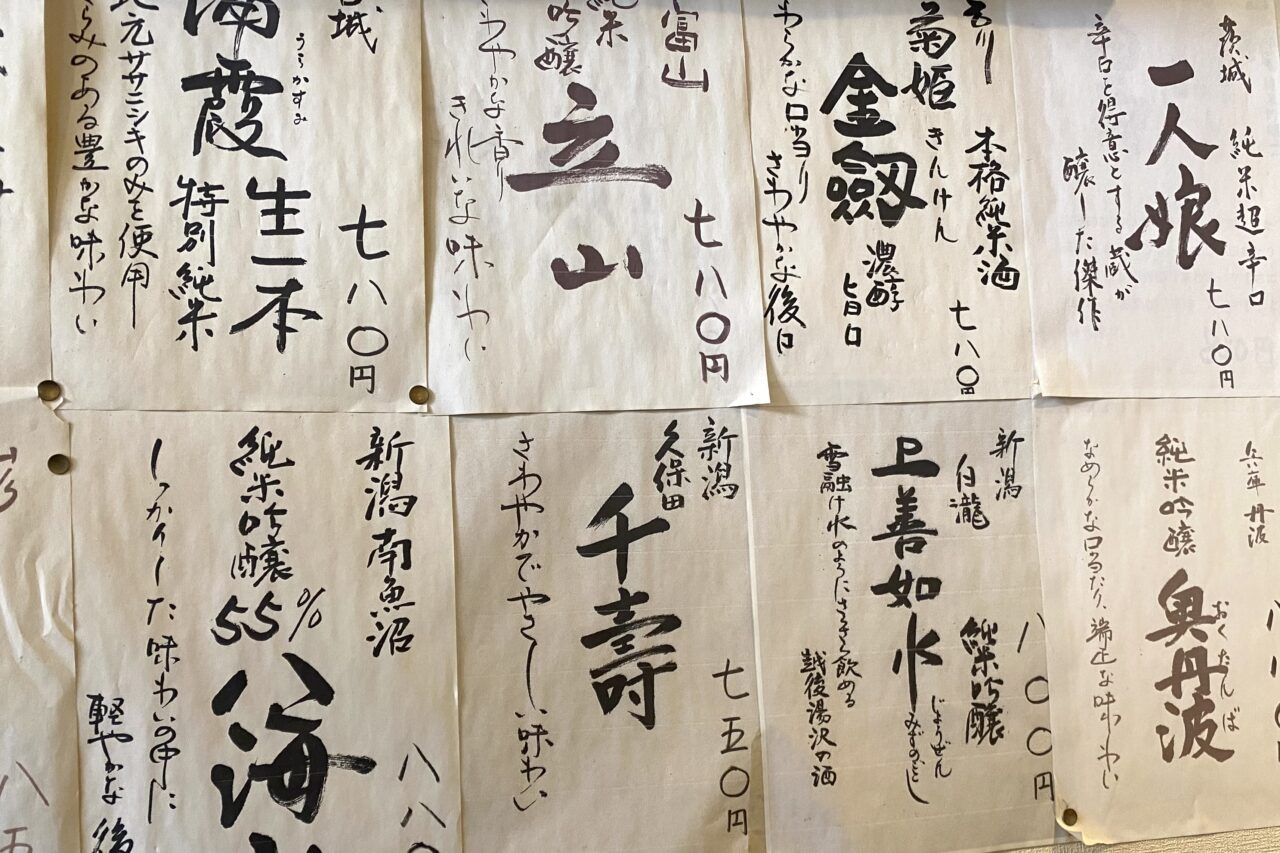 茨城
純米超辛口
一人娘
辛口を得意とする蔵が
醸した傑作
七八〇円
石川
菊姫
本格純米酒
金劔
きんけん
濃醇
旨口
わらかな口当り
さわやかな後口
七八〇円
富山
純米
吟醸
立山
わやかな香り
きれいな味わい
七八〇円
城
浦霞
うらかすみ
生一本
特別純米
元ササニシキのみを使用
らみのある豊かな味わい
七八〇円
兵庫 丹波
純米吟醸
奥丹波
おくたんば
なめらかな口当たり、端正な味わい
新潟
白瀧
上善如水
純米吟醸
じょうぜん
みずのごとし
雪融け水のようにさらさら飲める
越後湯沢の酒
八〇〇円
新潟
久保田
千壽
さわやかでやさしい味わい
七五〇円
新潟 南魚沼
純米吟醸
55%
八海
しっかりした味わいの中に
軽やかな後
八八〇
八五